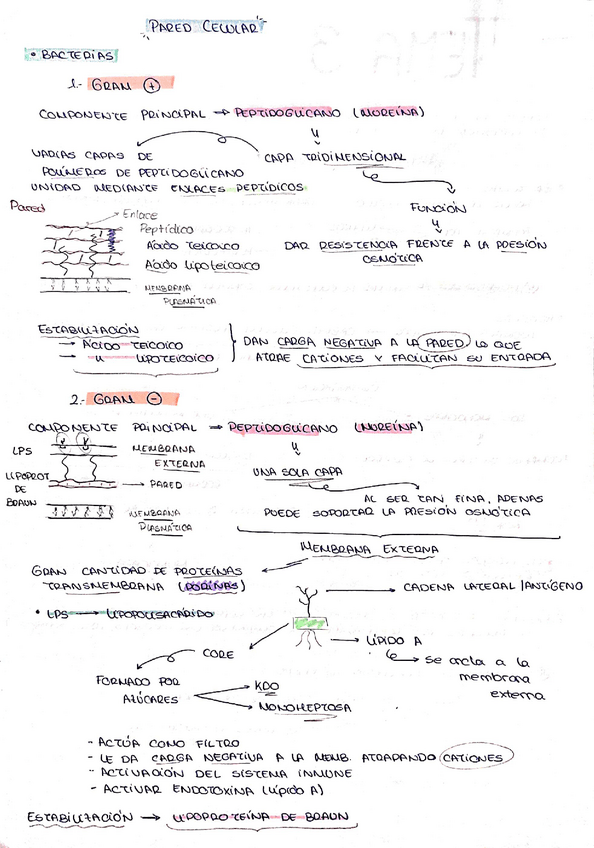 PARED CELULAR
• BACTERIAS
1.- GRAM +
COMPONENTE PRINCIPAL → PEPTIDOGLICANO (MUREÍNA)
VARIAS CAPAS DE
POLÍMEROS DE PEPTIDOGLICANO
UNIDAD MEDIANTE ENLACES PEPTÍDICOS
CAPA TRIDIMENSIONAL
FUNCIÓN
DAR RESISTENCIA FRENTE A LA PRESIÓN
OSMÓTICA
Pared
Enlace
Peptídico
Ácido teicoico
Ácido lipoteicoico
MEMBRANA
PLASMÁTICA
ESTABILIZACIÓN
→ ÁCIDO TEICOICO
→ " LIPOTEICOICO
DAN CARGA NEGATIVA A LA PARED LO QUE
ATRAE CATIONES Y FACILITAN SU ENTRADA
2.- GRAM -
COMPONENTE PRINCIPAL → PEPTIDOGLICANO (MUREÍNA)
LPS
LIPOPROT
DE
BRAUN
MEMBRANA
EXTERNA
→ PARED
MEMBRANA
PLASMÁTICA
UNA SOLA CAPA
AL SER TAN FINA, APENAS
PUEDE SOPORTAR LA PRESIÓN OSMÓTICA
MEMBRANA EXTERNA
GRAN CANTIDAD DE PROTEÍNAS
TRANSMEMBRANA (PORINAS)
• LPS → LIPOPOLISACÁRIDO
CADENA LATERAL/ANTÍGENO
LÍPIDO A
→ se ancla a la
membrana
externa
CORE
FORMADO POR
AZÚCARES
KDO
MONOHEPTOSA
- ACTÚA COMO FILTRO
- LE DA CARGA NEGATIVA A LA MEMB. ATRAPANDO CATIONES
- ACTIVACIÓN DEL SISTEMA INMUNE
- ACTIVAR ENDOTOXINA (LÍPIDO A)
ESTABILIZACIÓN → LIPOPROTEÍNA DE BRAUN